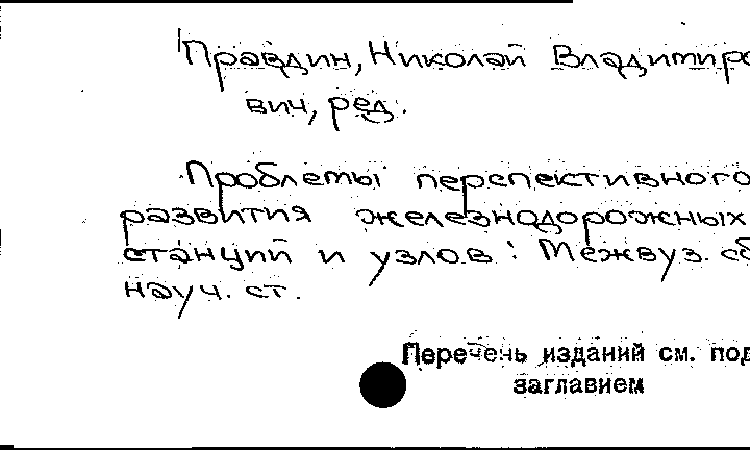 Правдин, Николай Владимиро
вич, ред.
Проблемы перспективного
развития железнодорожных
станций и узлов: Межвуз. сб
науч. ст.
Перечень изданий см. под
заглавием